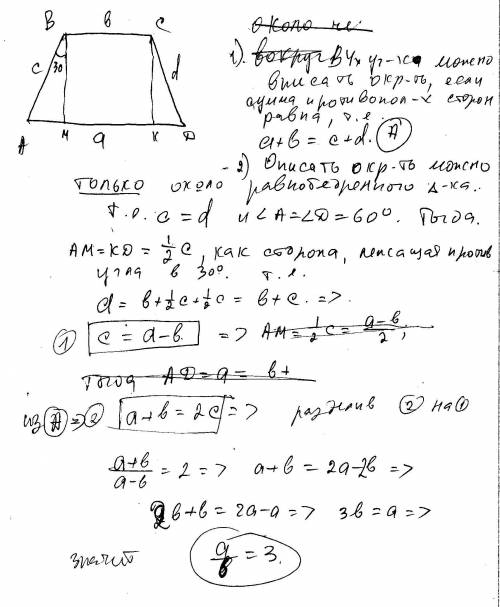 B в C
c 30 d
A M a K D
Около че
1). вокруг В 4х уг-ка можно
вписать окр-ть, если
сумма противопол-х сторон
равна, т.е.
a+в = c+d. (A)
- 2) Описать окр-ть можно
только около равнобедренного △-ка.
т.е. c = d и ∠A=∠D=60°. Тогда.
AM=KD= 1/2 c, как сторона, лежащая против
угла в 30°. т.е.
a = в+1/2c+1/2c = в+c. =>.
① c = a-в. => AM=1/2c= a-в/2,
Тогда AD=a= в+
из (A)=>② a+в=2c => разделив ② на ①
a+в/a-в = 2 => a+в = 2a-2в =>
2в+в = 2a-a => 3в=a =>
значит a/в = 3.